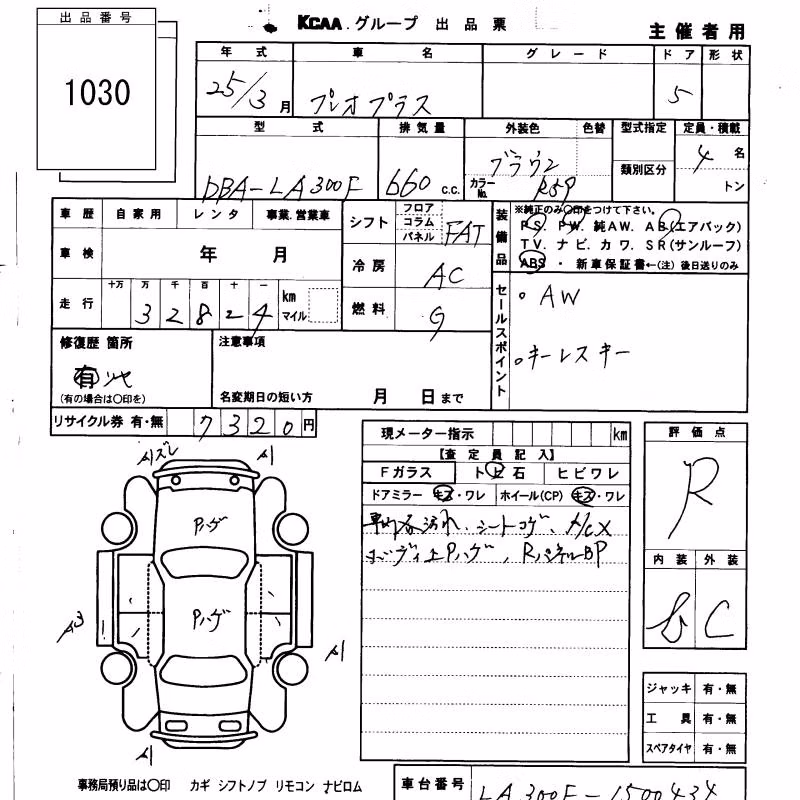 出品番号
1030
KCAA.グループ 出品票
主催者用
年式 車名 グレード ドア 形状
25/3月 プレオプラス 5
型式 排気量 外装色 色替 型式指定 定員・積載
DBA-LA300F 660 c.c. ブラウン 4名
カラーNo. R59 類別区分 トン
車歴 自家用 レンタ 事業.営業車
シフト フロア コラム パネル FAT
装備品 ※純正のみ〇印をつけて下さい。
PS. PW. 純AW. AB(エアバック)
TV. ナビ. カワ. SR(サンルーフ)
ABS ・ 新車保証書←(注) 後日送りのみ
車検 年 月
冷房 AC
走行 十万 万 千 百 十 一
32824 km マイル
燃料 G
セールスポイント
。AW
。キーレスキー
修復歴 箇所
有
(有の場合は〇印を)
注意事項
名変期日の短い方 月 日まで
リサイクル券 有・無 7320円
現メーター指示 km
【査定員記入】
Fガラス トビ石 ヒビワレ
ドアミラー キズ・ワレ ホイール(CP) キズ・ワレ
車内 汚れ、シートコゲ、A/CX
ボディ上Pハゲ、RパネルBP
評価点
R
内装 外装
b C
ジャッキ 有・無
工具 有・無
スペアタイヤ 有・無
Aズレ
A1
Pハゲ
Pハゲ
A3
A1
A1
事務局預り品は〇印 カギ シフトノブ リモコン ナビロム
車台番号 LA300F-1500434